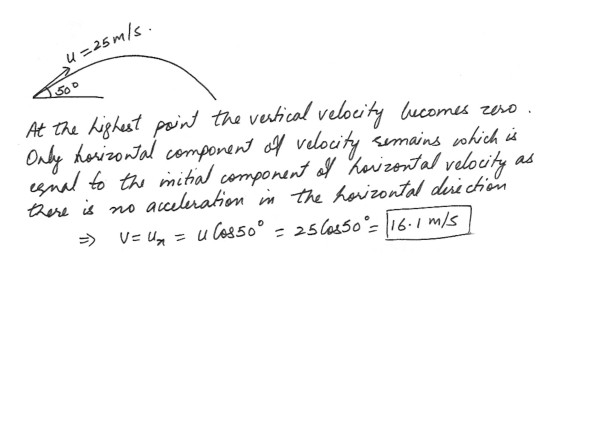 u = 25 m/s.
50°
At the highest point the vertical velocity becomes zero.
Only horizontal component of velocity remains which is
equal to the initial component of horizontal velocity as
there is no acceleration in the horizontal direction
⇒ V = uₓ = u Cos50° = 25 Cos50° = 16.1 m/s